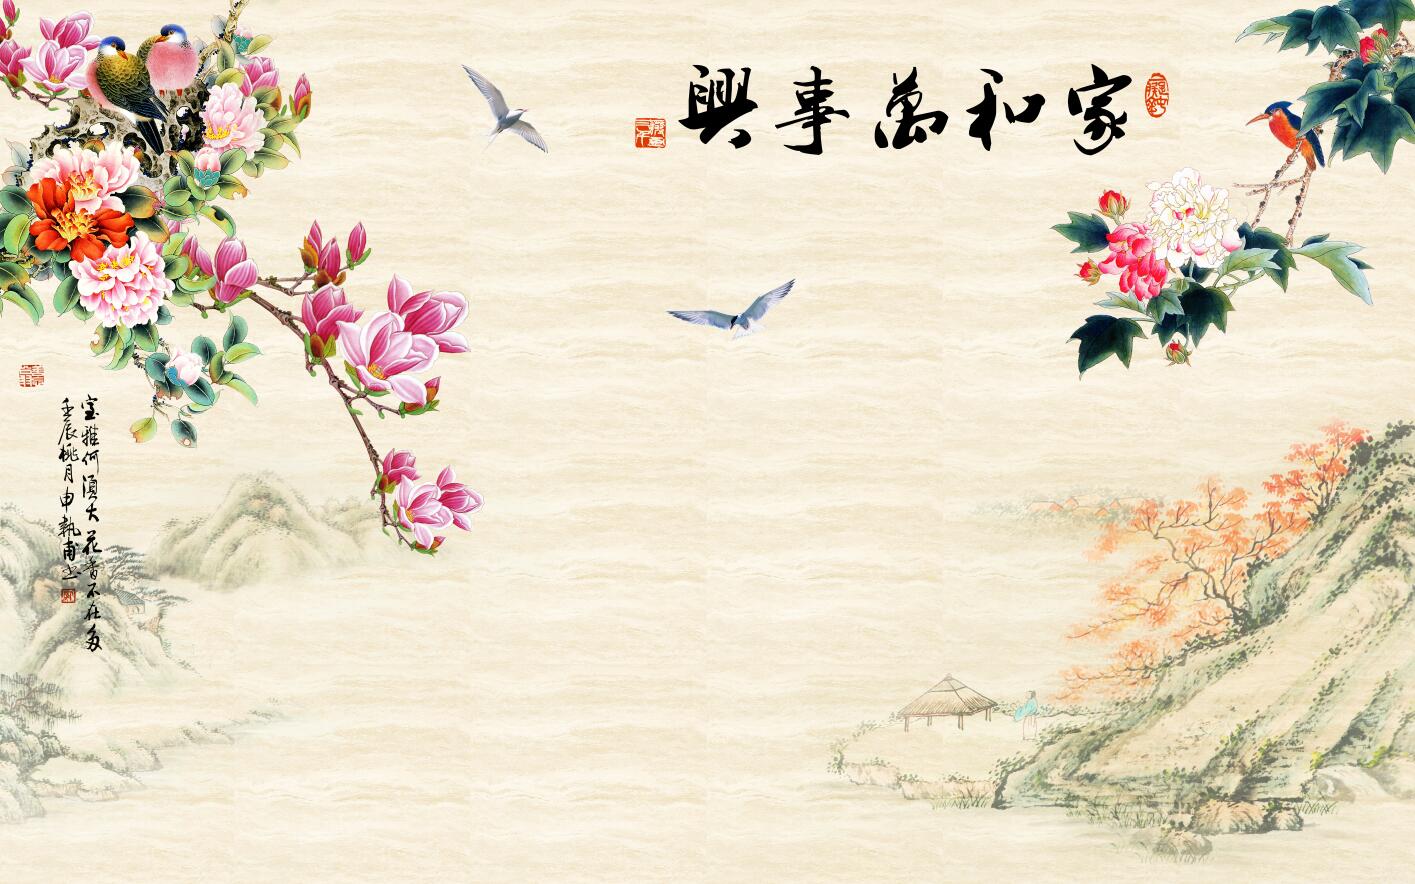 家和萬事興
室雅何須大花香不在多
壬辰桃月申執甫书